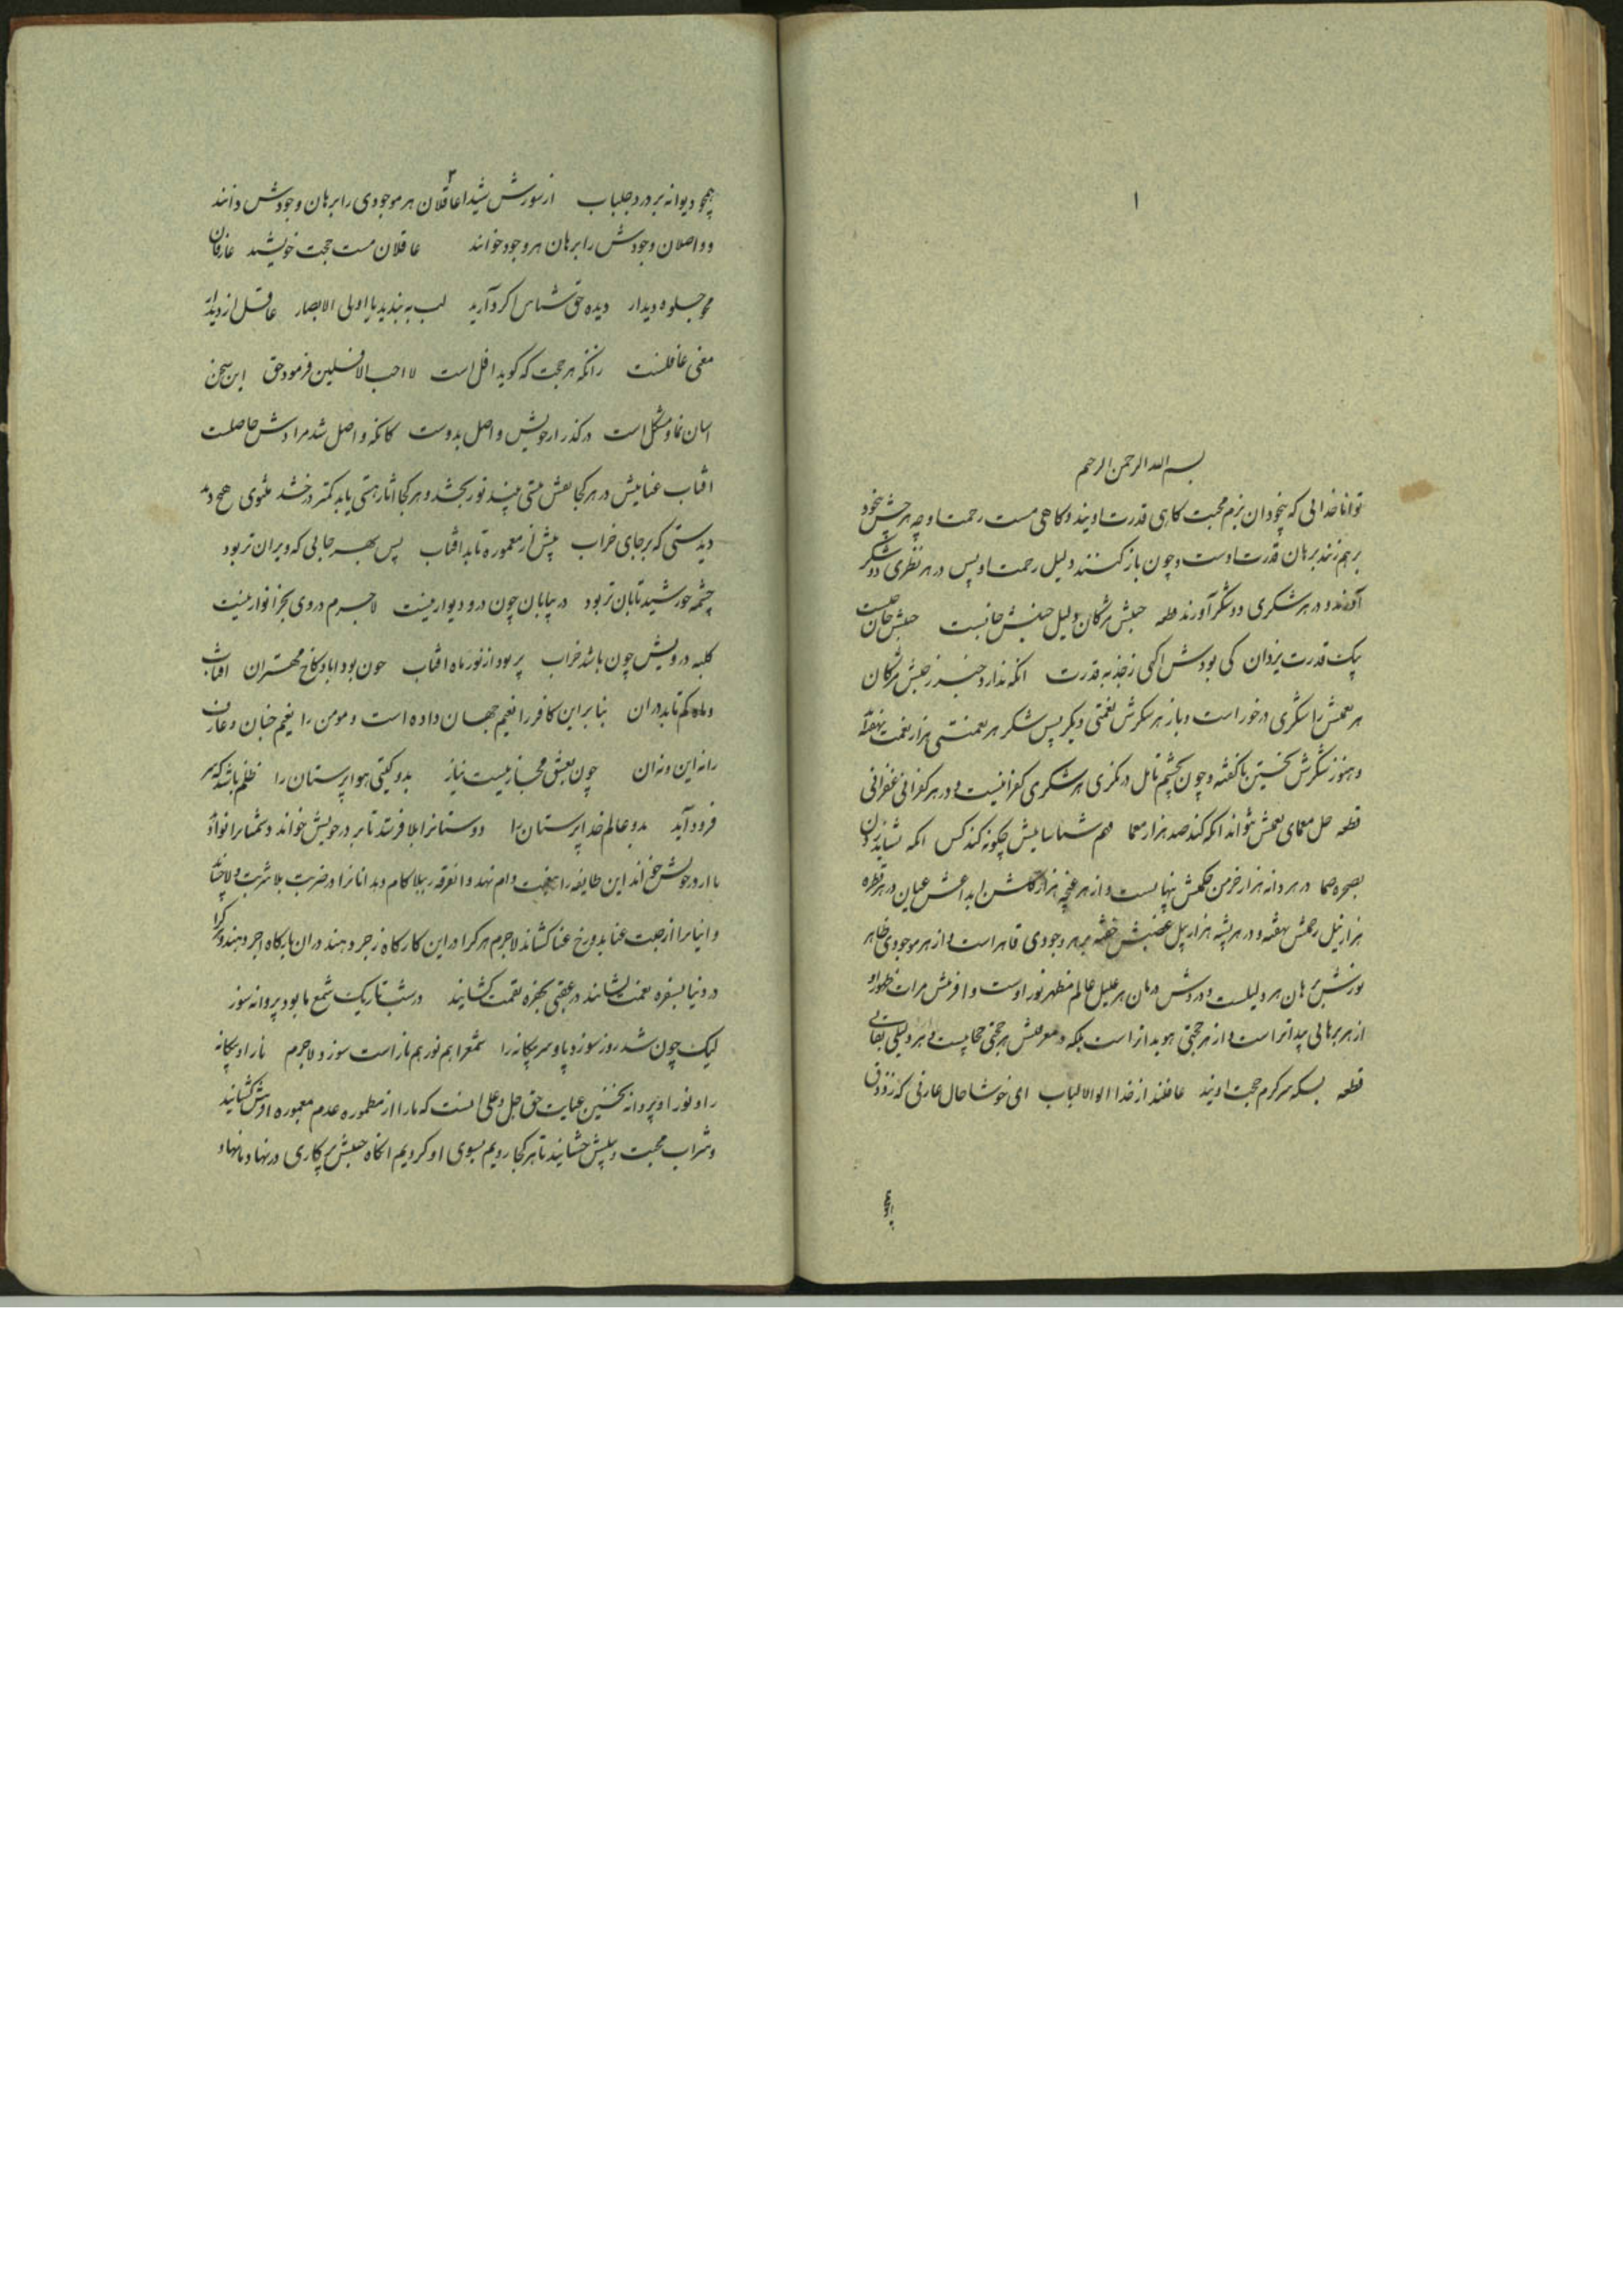 ۱
بسم الله الرحمن الرحیم
توانا خدائی که بیخودان بزم محبت کاهی قدرت اویند و کاهی مست رحمت او چه هر چشم بیخود
برهم زنند برهان قدرت اوست و چون باز کنند دلیل رحمت او پس در هر نظری دو شکر
آورند و در هر شکری دو شکر آورند قطعه جنبش مژکان دلیل جنبش جانست جنبش جان چیست
پیک قدرت یزدان کی بودش اکهی ز جذبه قدرت انکه ندارد خبر ز جنبش مژکان
هر نعمتش را شکری درخور است و باز هر شکرش نعمتی دیکر پس شکر هر نعمتی هزار نعمت نهفته
و هنوز شکرش نخستین ناکفته و چون بچشم تامل درنکری هر شکری کفرانیست و در هر کفرانی غفرانی
قطعه حل معمای نعمتش نتواند انکه کند صد هزار معما فهم شناسائیش چکونه کند کس انکه نشاید زدن
بصحره صما در هر دانه هزار خرمن حکمتش نهانست و از هر غنچه هزار کلشن ابداعش عیان در هر قطره
هزار نیل رحمتش نهفته و در هر پشه هزار پیل غضبش خفته بر هر وجودی قاهر است و از هر موجودی ظاهر
نورش برهان هر دلیلست و دردش درمان هر علیل عالم مظهر نور اوست و افرینش مرات ظهور او
از هر برهانی پیداتر است و از هر حجتی هویداتر است بلکه در معرفتش هر حجتی حجابیست و هر دلیلی نقابی
قطعه بسکه سرکرم حجت اویند عافلند از خدا الوالالباب ای خوشا حال عارفی که ز ذوق
همچو
۲
همچو دیوانه بردرد جلباب از شورش شیدا عاقلان هر موجودی را برهان وجودش دانند
و واصلان وجودش را برهان هر وجود خوانند عاقلان مست حجت خویشند عارفان
محو جلوه دیدار دیده حق شناس اکر دارید لب به بندید یا اولی الابصار عاقل از دیدار
معنی غافلست زانکه هر حجت که کوید افل است لا احب الافلین فرمود حق این سخن
اسان نما و مشکل است درکذر از خویش و اصل بدوست کانکه واصل شد مرادش حاصلست
افتاب عنایتش در هر کجا نقش نیستی بیند نور بخشد و هر کجا اثار هستی یابد کمتر درخشد مثنوی هیچ دید
دیدستی که بر جای خراب بیش از معموره تابد افتاب پس بهر جایی که ویران تر بود
چشمه خورشید تابان تر بود در بیابان چون در و دیوار نیست لاجرم در وی بجز انوار نیست
کلبه درویش چون باشد خراب پر بود از نور ماه افتاب چون بود اباد کاخ مهتران افتاب
و ماه کم تابد در ان بنابراین کافر را نعیم جهان داده است و مومن را نعیم جنان و عارف
را نه این و نه ان چون بعشق مجاز نیست نیاز بدو کیتی هواپرستان را ظلم باشد که سر
فرود آید بدو عالم خداپرستان را دوستانرا بلا فرستد تا بر در خویش خواند و دشمنانرا نوا دهد
تا از در خویش راند این طایفه را بنعمت دام نهد و انفرقه را ببلا کام دهد انانرا در ضربت بلا شربت ولا چشاند
و اینانرا از جنت غنا بدوزخ عنا کشاند لاجرم هر کرا در این کارکاه زجر دهند در ان بارکاه اجر دهند و هر کرا
در دنیا بسفره نعمت نشانند در عقبی بحفره نقمت کشانند در شب تاریک شمع ما بود پروانه سوز
لیک چون شد روز سوزد پا و سر بیکانه را شمع را هم نور هم نار است سوزد لاجرم نار او بیکانه
را و نور او پروانه نخستین عنایت حق جل و علی انست که ما را از مطموره عدم بمعموره کشانید
و شراب محبت خویش چشانید تا هر کجا رویم بسوی او کردیم انکاه جنبش هر کاری در نهاد ما نهاد